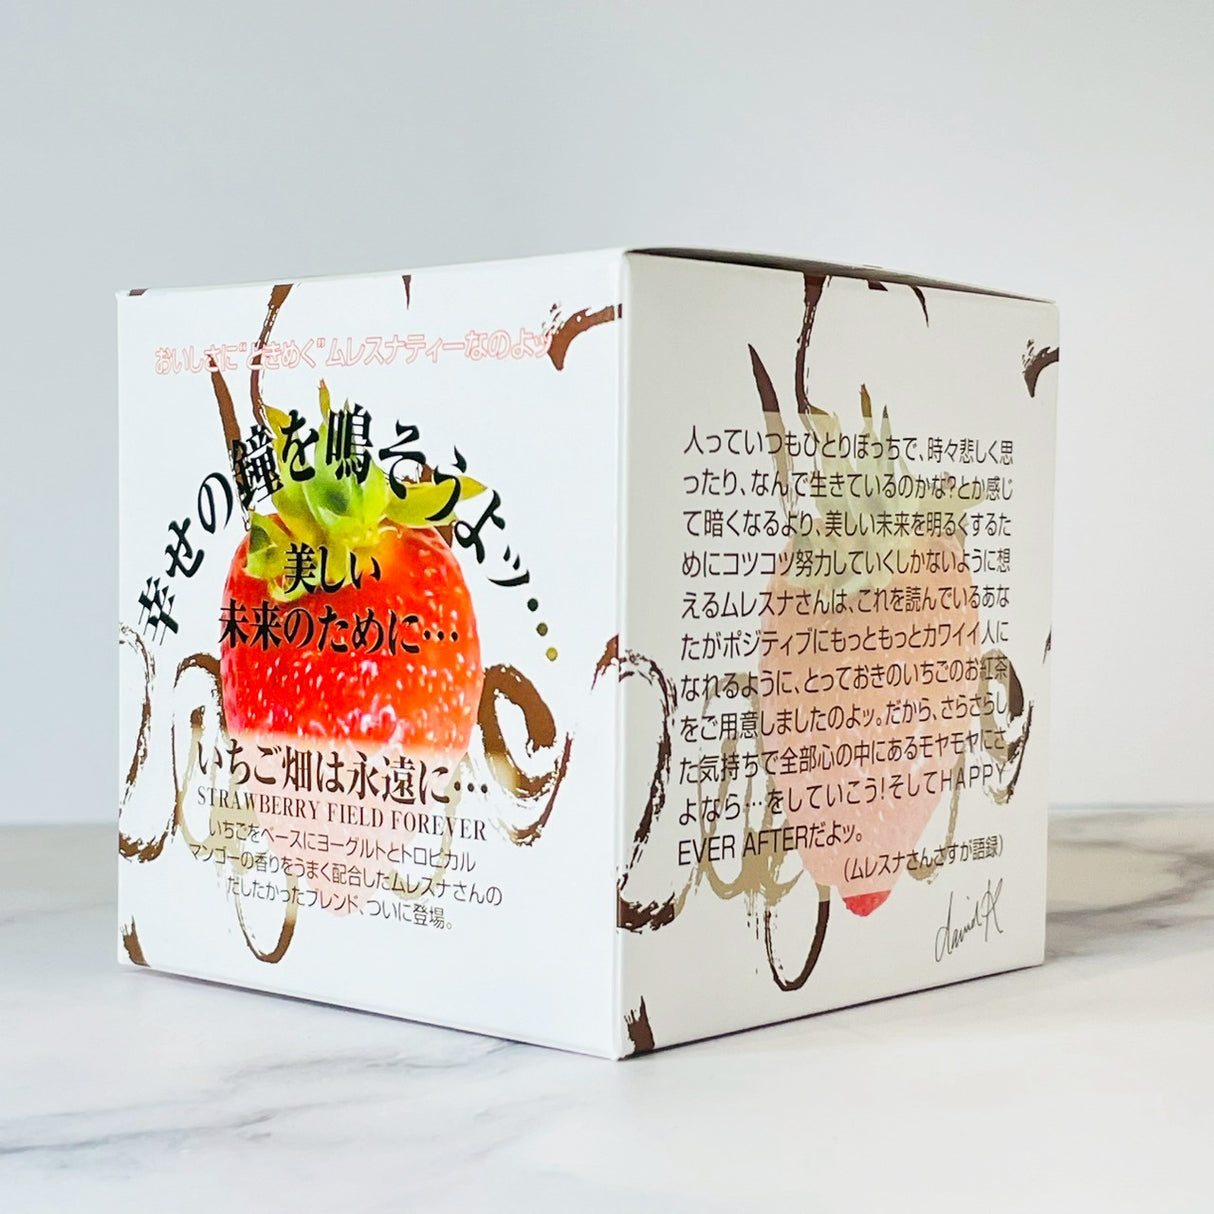 おいしさに“ときめく”ムレスナティーなのよッ
幸せの鐘を鳴そうよッ・・・
美しい
未来のために…
いちご畑は永遠に…
STRAWBERRY FIELD FOREVER
いちごをベースにヨーグルトとトロピカル
マンゴーの香りをうまく配合したムレスナさんの
だしたかったブレンド、ついに登場。
人っていつもひとりぼっちで、時々悲しく思
ったり、なんで生きているのかな?とか感じ
て暗くなるより、美しい未来を明るくするた
めにコツコツ努力していくしかないように想
えるムレスナさんは、これを読んでいるあな
たがポジティブにもっともっとカワイイ人に
なれるように、とっておきのいちごのお紅茶
をご用意しましたのよッ。だから、さらさらし
た気持ちで全部心の中にあるモヤモヤにさ
よなら…をしていこう!そしてHAPPY
EVER AFTERだよッ。
(ムレスナさんさすが語録)
david K